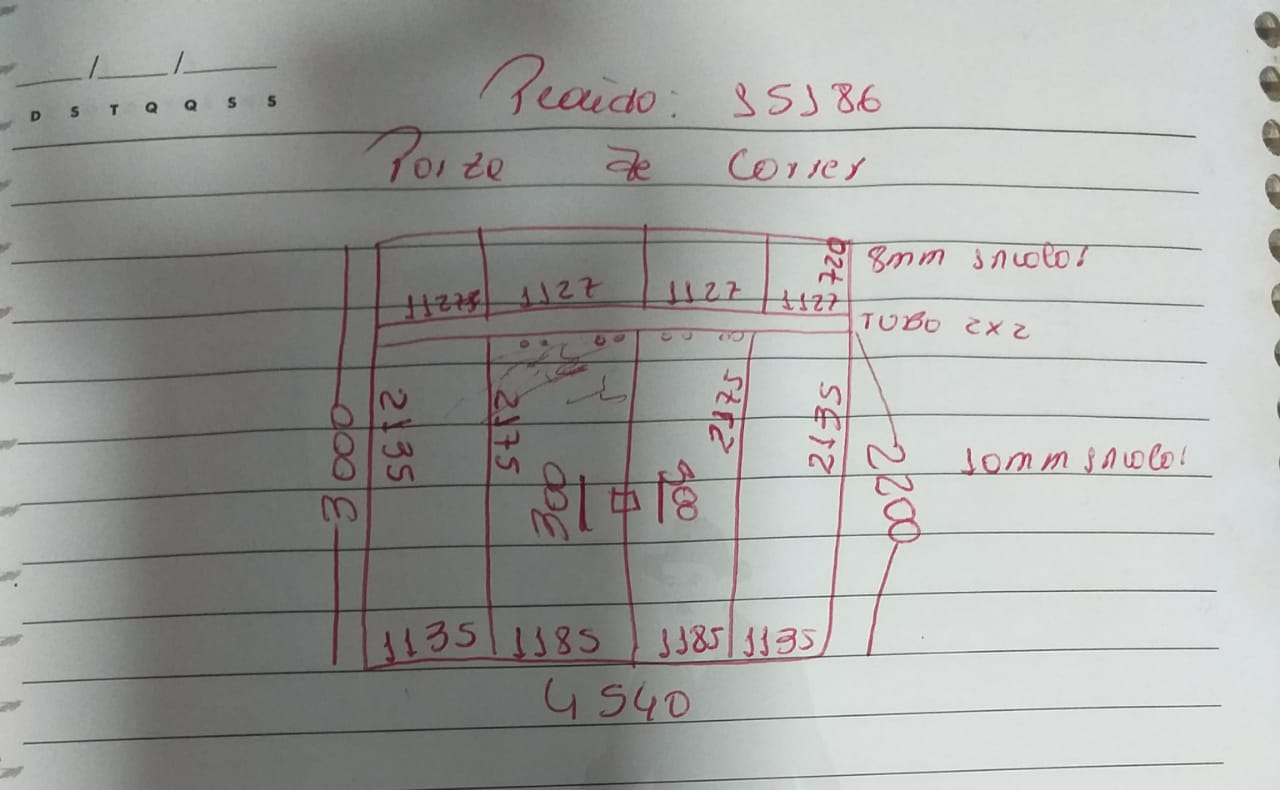 D S T Q Q S S
Pedido: 15186
Porta de Correr
8mm incolor
720
1127 1127 1127 1127
TUBO 2x2
3000
2135 2175 2175 2135
2200
10mm incolor
300
1135 1185 1185 1135
4540